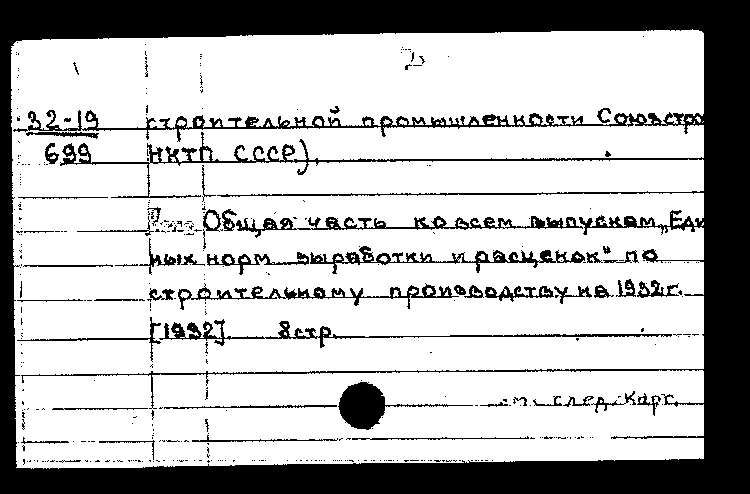 2
32-19 строительной промышленности Союзстро
699 НКТП. СССР).
Общая часть ко всем выпускам „Еди
ных норм выработки и расценок" по
строительному производству на 1932г.
[1932]. 8стр.
см. след. карт.